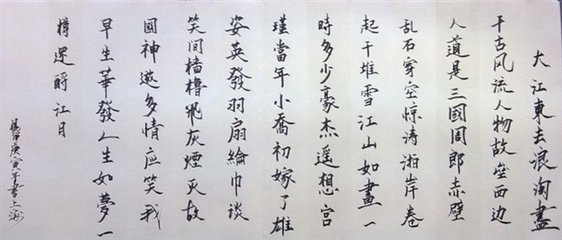 大江東去浪淘盡
千古風流人物故壘西邊
人道是三國周郎赤壁
乱石穿空惊涛拍岸卷
起千堆雪江山如畫一
時多少豪杰遥想宫
瑾當年小喬初嫁了雄
姿英發羽扇綸巾谈
笑间樯櫓飛灰煙灭故
國神遊多情应笑我
早生華發人生如夢一
樽還酹江月
庚寅年書上海